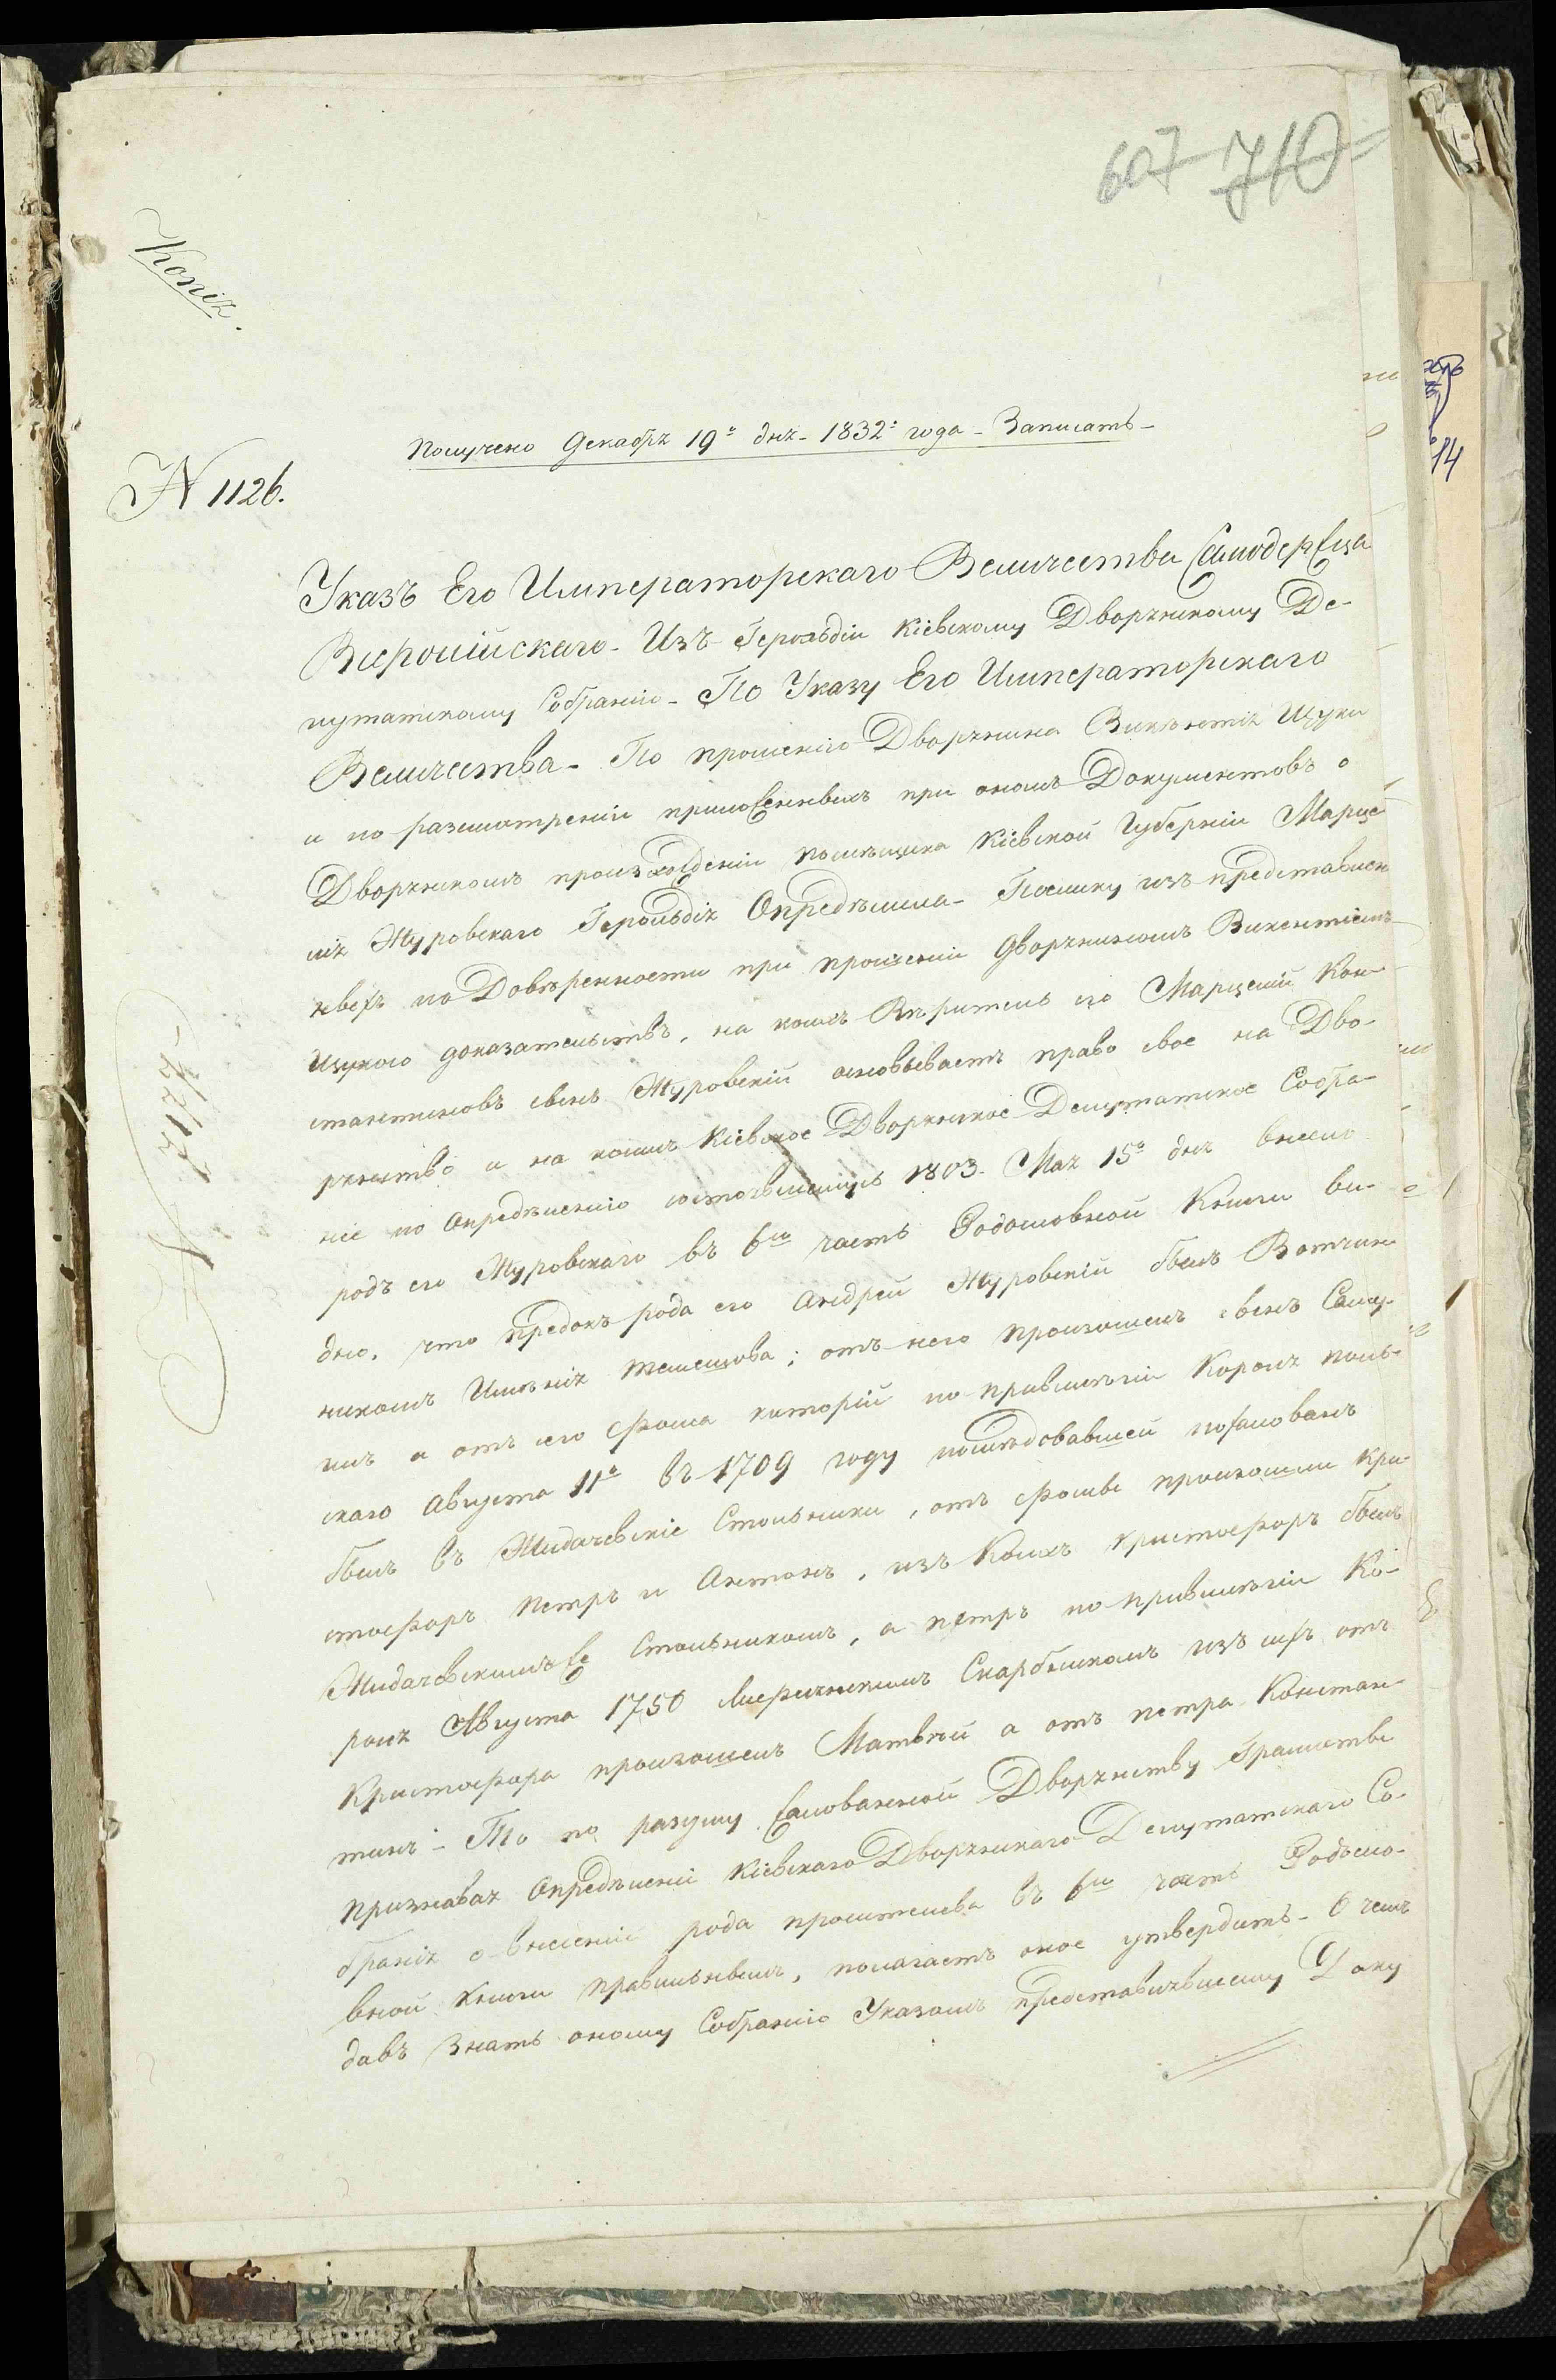 607 710
Копія.
Получено Декабря 19го дня - 1832го года - Записать -
N 1126.
Указъ Его Императорскаго Величества Самодержца
Всероссійскаго - Изъ Герольдіи Кіевскому Дворянскому Де-
путатскому Собранію - По Указу Его Императорскаго
Величества - По прошенію Дворянина Викѣнтія Щуки
и по разсмотреніи приложенныхъ при ономъ Документовъ о
Дворянскомъ произхожденіи помѣщика Кіевской Губерніи Марце
лія Журовскаго Герольдія Опредѣлила - Поелику изъ представлен
ныхъ по Довѣренности при прошеніи Дворяниномъ Викентіемъ
Щукою доказательствъ, на коихъ Вѣритель его Марцелій Кон-
стантиновъ сынъ Журовскій основываетъ право свое на Дво-
рянство и на коихъ Кіевское Дворянское Депутатское Собра-
ніе по опредѣленію состоявшемуся 1803. Мая 15го дня внесло
родъ его Журовскаго въ 6ю часть Родословной Книги ви-
дно, что предокъ рода его Андрей Журовскій былъ Вотчин-
никомъ Имѣнія Телешова; отъ него произошелъ сынъ Саму-
илъ а отъ его Фома которій по привилегіи Короля поль-
скаго Августа IIго въ 1709 году послѣдовавшей пожалованъ
былъ въ Жидачевскіе Стольники, отъ Фомы произошли Кри-
стофоръ Петръ и Антонъ, изъ Коихъ Христофоръ былъ
Жидачевскимъ же Стольникомъ, а Петръ по привилегіи Ко-
роля Августа 1750 Мельницкимъ Скарбникомъ изъ ихъ отъ
Христофора произошелъ Матвѣй а отъ Петра Констан-
тинъ - То по разуму жалованной Дворянству Грамоты
признавая Опредѣленіе Кіевскаго Дворянскаго Депутатскаго Со-
бранія о внесеніи рода просителева въ 6ю часть Родосло-
вной Книги правильнымъ, полагаетъ оное утвердить - О чемъ
давъ знать оному Собранію Указомъ представившему Доку